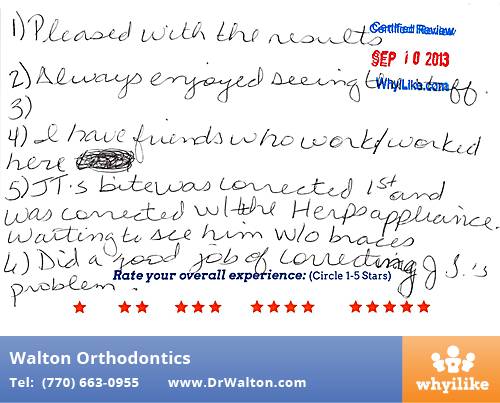 1) Pleased with the results
Certified Review
SEP 10 2013
WhyILike.com
2) Always enjoyed seeing the staff.
3)
4) I have friends who work/worked
here
5) JT.'s bite was corrected 1st and
was corrected w/ the Herps appliance.
Waiting to see him w/o braces
6) Did a good job of correcting J 's
problem.
Rate your overall experience: (Circle 1-5 Stars)
Walton Orthodontics
Tel: (770) 663-0955 www.DrWalton.com
whyilike